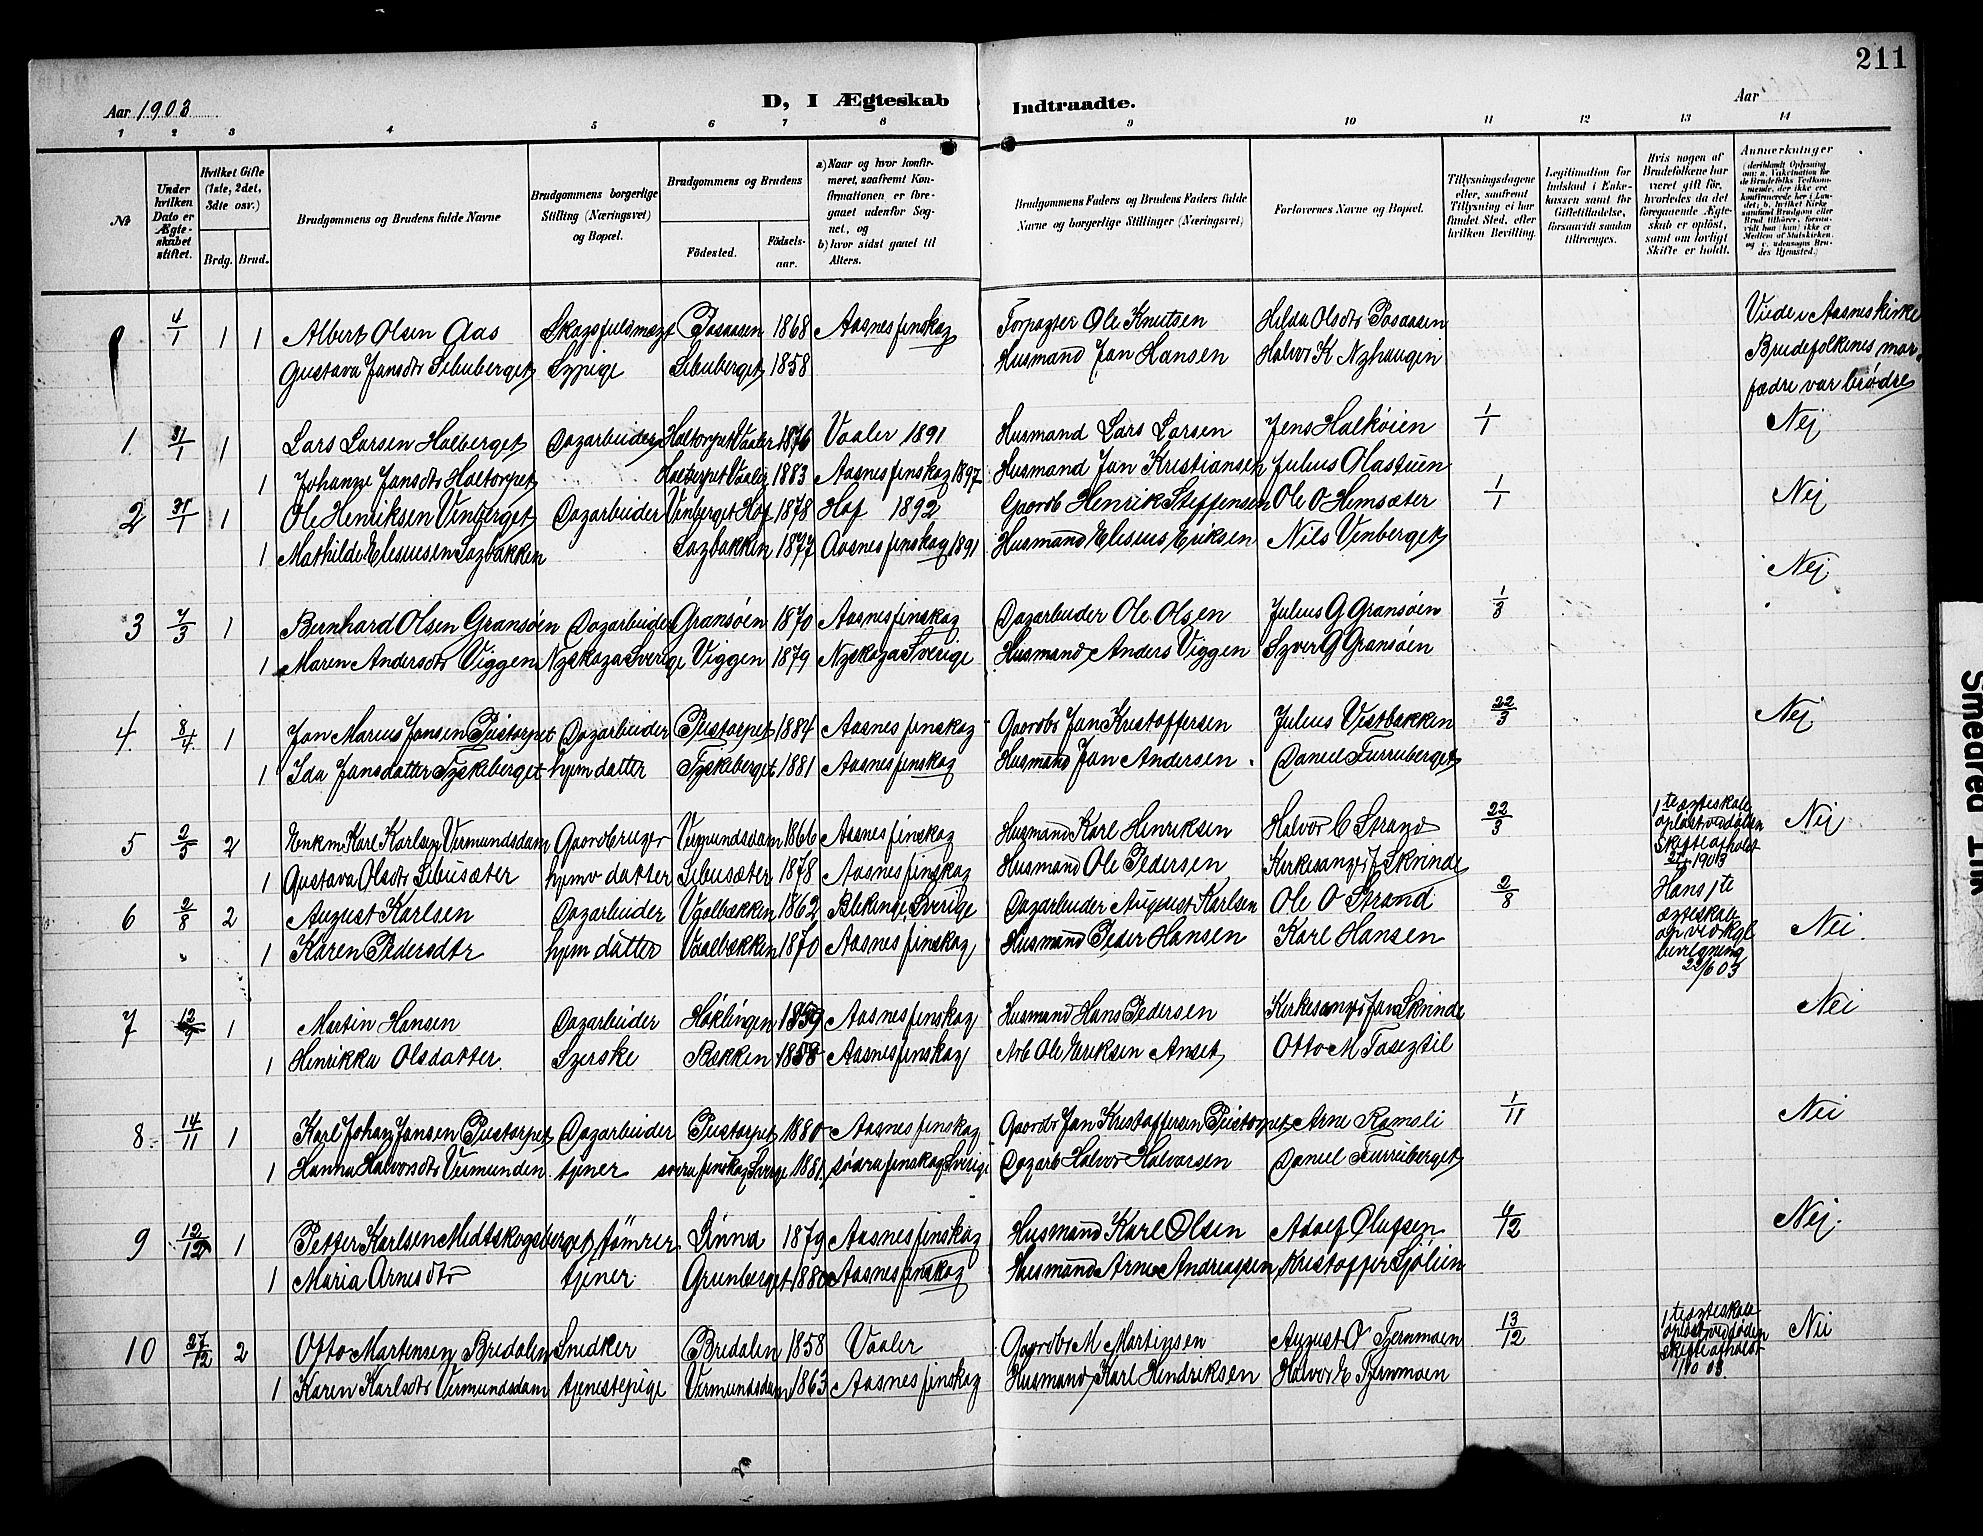 211
Aar 1903 D, I Ægteskab Indtraadte. Aar
1 2 3 4 5 6 7 8 9 10 11 12 13 14
№
Under hvilken Dato er Ægteskabet stiftet.
Hvilket Gifte (1ste, 2det, 3die osv.)
Brdg. Brud.
Brudgommens og Brudens fulde Navne
Brudgommens borgerlige Stilling (Næringsvei) og Bopæl.
Brudgommens og Brudens
Fødested. Fødselsaar.
a) Naar og hvor konfirmeret, saafremt Konfirmationen er foregaaet udenfor Sognet, og
b) hvor sidst gaaet til Alters.
Brudgommens Faders og Brudens Faders fulde Navne og borgerlige Stillinger (Næringsvei)
Forlovernes Navne og Bopæl.
Tillysningsdagene eller, saafremt Tillysning ei har fundet Sted, efter hvilken Bevilling.
Legitimation for Indskud i Enkekassen samt for Giftetilladelse, forsaavidt saadan tiltrænges.
Hvis nogen af Brudefolkene har været gift før, hvorledes da det foregaaende Ægteskab er opløst, samt om lovligt Skifte er holdt.
Anmerkninger
4/1 1 1 Albert Olsen Aas Skogsfuldmægt Posaasen 1868 Aasnes finskog Forpagter Ole Knutsen Hilda Olsdtr Posaasen Viede i Aasnes kirke
Gustava Jansdtr Sibuberget Sypige Sibuberget 1858 Husmand Jan Hansen Halvor K Nyhaugin Brudefolkenes mor-
fædre var brødre
1. 31/1 1 Lars Larsen Halberget Dagarbeider Holtorpet Vaaler 1876 Vaaler 1891 Husmand Lars Larsen Jens Halkøien 1/1 Nej
1 Johanne Jansdtr Holtorpet Holtorpet Vaaler 1883 Aasnes finskog 1897 Husmand Jan Kristiansen Julius Olastuen
2 31/1 1 Ole Henriksen Vinberget Dagarbeider Vinberget Hof 1878 Hof 1892 Gaardb Henrik Steffensen Ole O Hemsæter 1/1 Nej
1 Mathilde Elesiusen Laybakken Laybakken 1877 Aasnes finskog 1891 Husmand Elesius Eriksen Nils Vinberget
Nej.
3 7/3 1 Bernhard Olsen Gransøen Dagarbeider Gransøen 1870 Aasnes finskog Dagarbeider Ole Olsen Julius G Gransøen 1/3
1 Maren Andersdtr Viggen Nyskoga Sverige Viggen 1879 Nyskoga Sverige Husmand Anders Viggen Syver G Gransøen
4. 8/4 1 Jan Marius Jansen Pustorpet Dagarbeider Pustorpet 1884 Aasnes finskog Gaardbr Jan Kristoffersen Julius Vestbakken 22/3 Nej
1 Ida Jansdatter Tyskeberget hjem datter Tyskeberget 1881 Aasnes finskog Husmand Jan Andersen. Daniel Furruberget
5 2/5 2 Enkm Karl Karlsen Vermundsdam Gaardbruger Vermundsdam 1866 Aasnes finskog Husmand Karl Henriksen Halvor C Strand 22/3 1te ægteskab opløst ved døden Skifte afholdt 1903 Nei
1 Gustava Olsdtr Sibusæter hjemv datter Sibusæter 1878 Aasnes finskog Husmand Ole Pedersen Kirkesanger J Skrinde
6 2/8 2 August Karlsen Dagarbeider Vaalbækken 1862 Blekinge, Sverige Dagarbeider August Karlsen Ole O Strand 2/8 Hans 1te ægteskab op ved kgl bevilgning 22/6 03 Nei.
1 Karen Pedersdtr hjem datter Vaalbækken 1870 Aasnes finskog Husmand Peder Hansen Karl Hansen
7 1 Martin Hansen Dagarbeider Høklingen 1859 Aasnes finskog Husmand Hans Pedersen Kirkesanger Jan Skrinde Nei
1 Henrikka Olsdatter. Syerske Bakken 1858 Aasnes finskog Arb Ole Eriksen Anset Otto M Fasegtil
8. 14/11 1 Karl Johan Jansen Pustorpet Dagarbeider Pustorpet 1880 Aasnes finskog Gaardbr Jan Kristoffersen Pustorpet Arne Ramsli 1/11 Nei
1 Hanna Halvorsdtr Vermunden. tjener södra finskog Sverige 1881 södra finskog Sverige Dagarb Halvor Halvorsen Daniel Furruberget
9 12/12 1 Petter Karlsen Midtskogsberget tømrer Linna 1879 Aasnes finskog Husmand Karl Olsen Adolf Olufsen 6/12 Nej.
1 Maria Arnesdtr tjener Grunberget 1880 Aasnes finskog Husmand Arne Andreassen Kristoffer Sjølien
10 27/12 2 Otto Martensen Bredalen Snedker Bredalen 1858 Vaaler Gaardbr M Martinsen August O Tjernmoen 13/12 1te ægteskab opløst ved døden skifte afholdt 1/10 03. Nei
1 Karen Karlsdtr Vermundsdam tjenestepige Vermundsdam 1863 Aasnes finskog Husmand Karl Hendriksen Halvor E Tjernmoen
Smedared Tlk